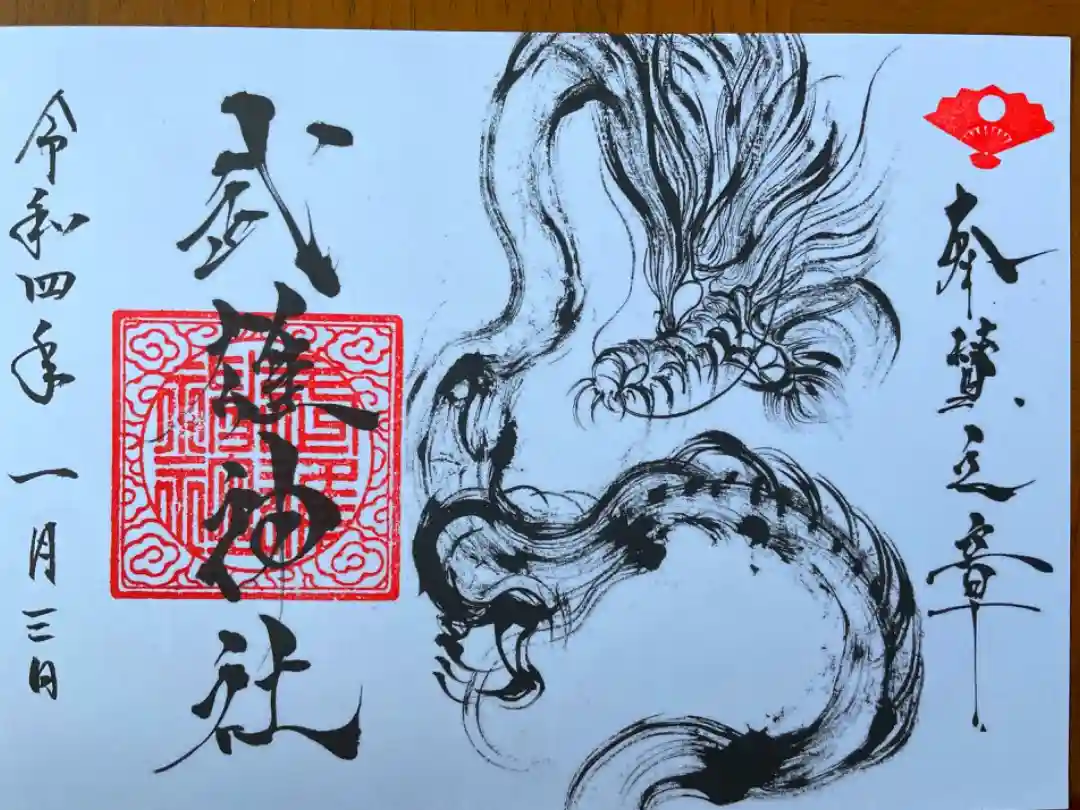 奉賛之章
武神社
令和四年 一月三日